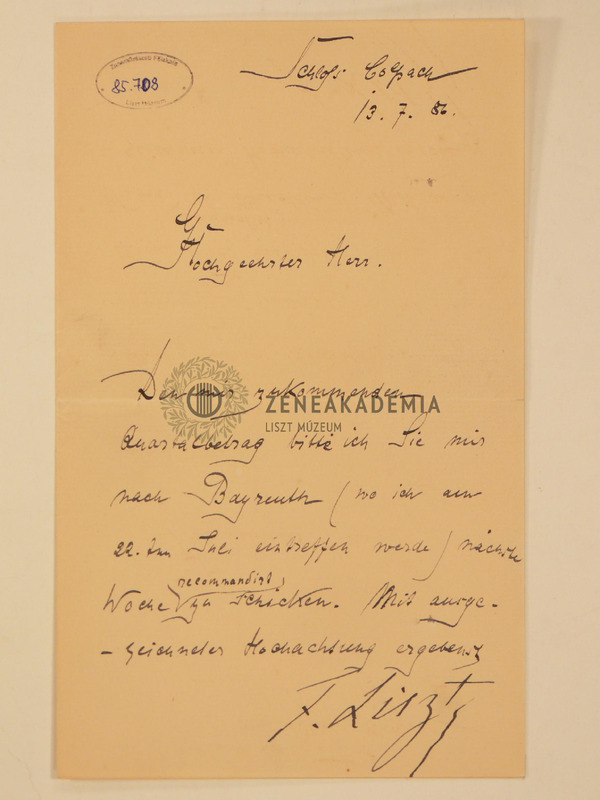 85.708
Schloss Colpach
13. 7. 86.
Hochgeehrter Herr.
Den mir zukommenden
ZENEAKADÉMIA
LISZT MÚZEUM
Quartalbetrag bitte ich Sie mir
nach Bayreuth (wo ich am
22. ten Juli eintreffen werde) nächste
recommandirt
Woche zu schicken. Mit ausge-
-zeichneter Hochachtung ergebenst
F. Liszt